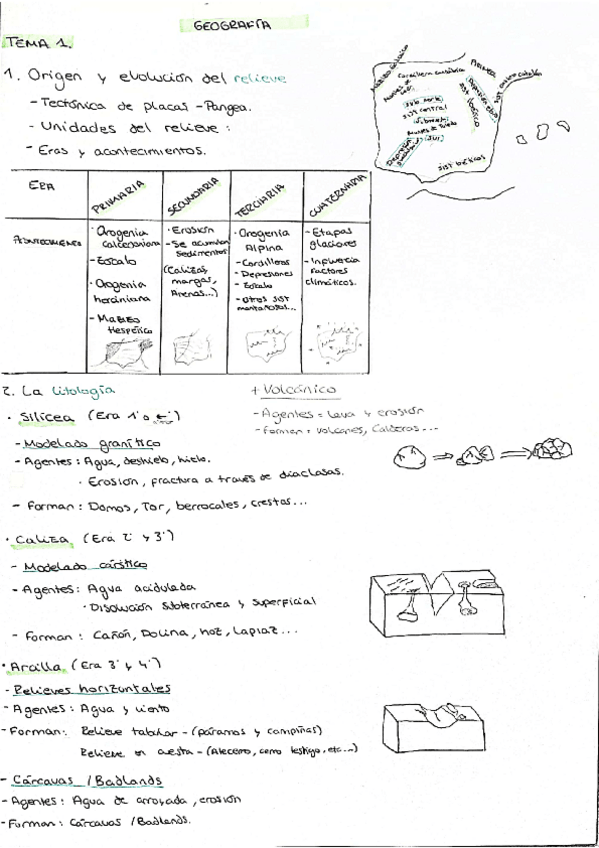 GEOGRAFÍA
TEMA 1.
1. Origen y evolución del relieve
- Tectónica de placas - Pangea.
- Unidades del relieve:
- Eras y acontecimientos.
Cordillera cantábrica
PIRINEO
SIST IBÉRICO
Sub. norte
SIST central
Montes de Toledo
SIST béticos
ERA
PRIMARIA
SECUNDARIA
TERCIARIA
CUATERNARIA
Acontecimientos
- Orogenia caledoniana
- Zócalo
- Orogenia herciniana
- Macizo Hespérico
- Erosión
- Se acumulan sedimentos
(Calizas, margas, Arenas...)
- Orogenia Alpina
- Cordilleras
- Depresiones
- Zócalo
- Otros sist montañosos...
- Etapas glaciares
- Influencia Factores climáticos.
2. La litología
+ Volcánico
- Agentes = lava y erosión
- Forman: volcanes, Calderas...
· Silícea (Era 1ª o
- Modelado granítico
- Agentes: Agua, deshielo, hielo.
· Erosión, fractura a través de diaclasas.
- Forman: Domos, Tor, berrocales, crestas...
· Caliza (Era 2ª y 3ª)
- Modelado cárstico
- Agentes: Agua acidulada
· Disolución subterránea y superficial
- Forman: Cañón, Dolina, hoz, Lapiaz...
· Arcilla (Era 3ª y 4ª)
- Relieves horizontales
- Agentes: Agua y viento
- Forman: Relieve tabular - (páramos y campiñas)
Relieve en cuesta - (Alcarreño, cerro testigo, etc...)
- Cárcavas / Badlands
- Agentes: Agua de arroyada, erosión
- Forman: Cárcavas / Badlands.